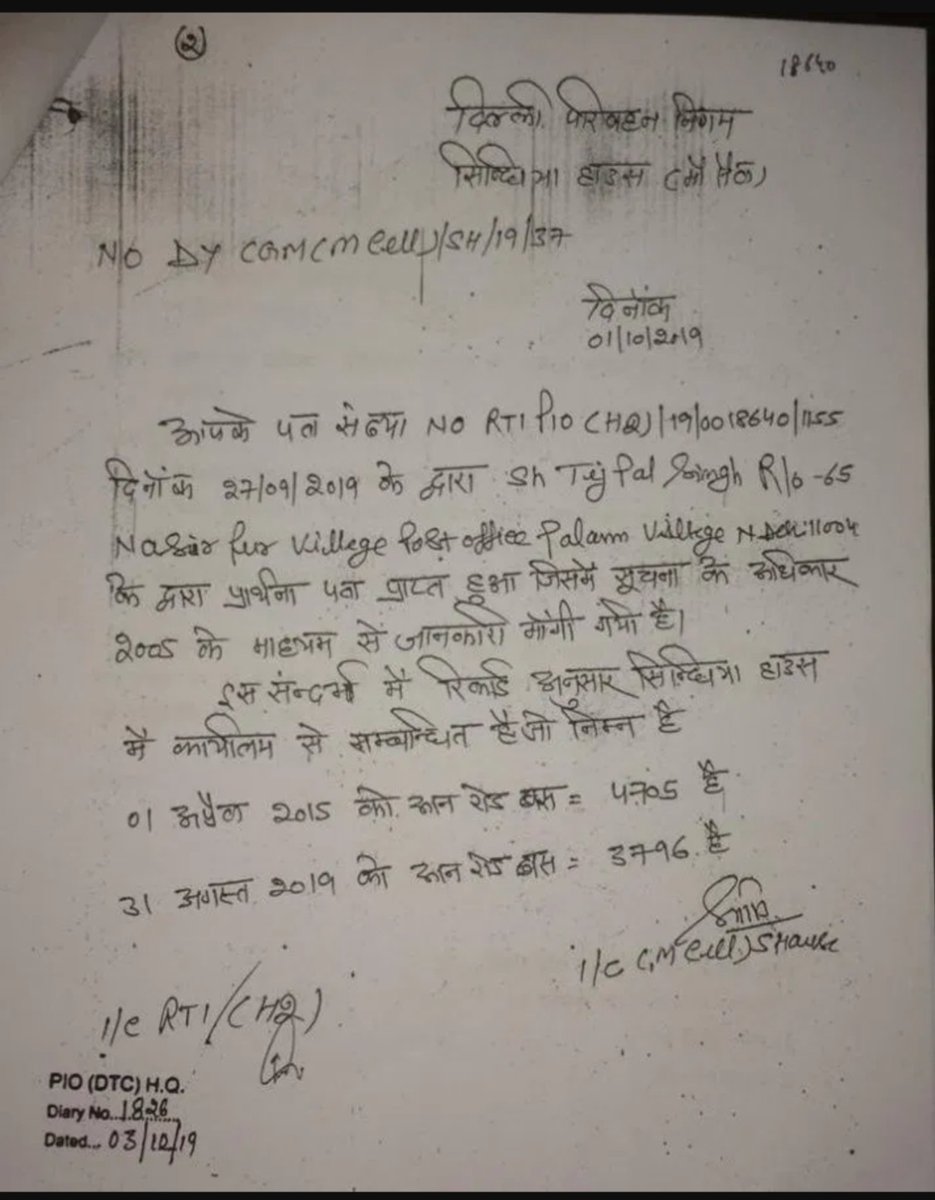 (२)
18640
दिल्ली परिवहन निगम
सिन्धिया हाउस (मै सैल)
NO DY CGM(M Cell)/SH/19/37
दिनाँक
01/10/2019
आपके पत्र संख्या NO RTI PIO (HQ)/19/0018640/1155
दिनाँक 27/09/2019 के द्वारा Sh Tej Pal Singh R/o -65
Nasir pur Village Post office Palam Village N.Delhi
के द्वारा प्रार्थना पत्र प्राप्त हुआ जिसमें सूचना के अधिकार
2005 के माध्यम से जानकारी माँगी गयी है।
इस संन्दर्भ में रिकार्ड अनुसार सिन्धिया हाउस
मै कार्यालय से सम्बन्धित है जो निम्न है
01 अप्रैल 2015 को आन रोड बस = 4705 है
31 अगस्त 2019 को आन रोड बस = 3796 है
I/c (M Cell) S House
I/c RTI/(HQ)
PIO (DTC) H.Q.
Diary No. 1826
Dated... 03/10/19